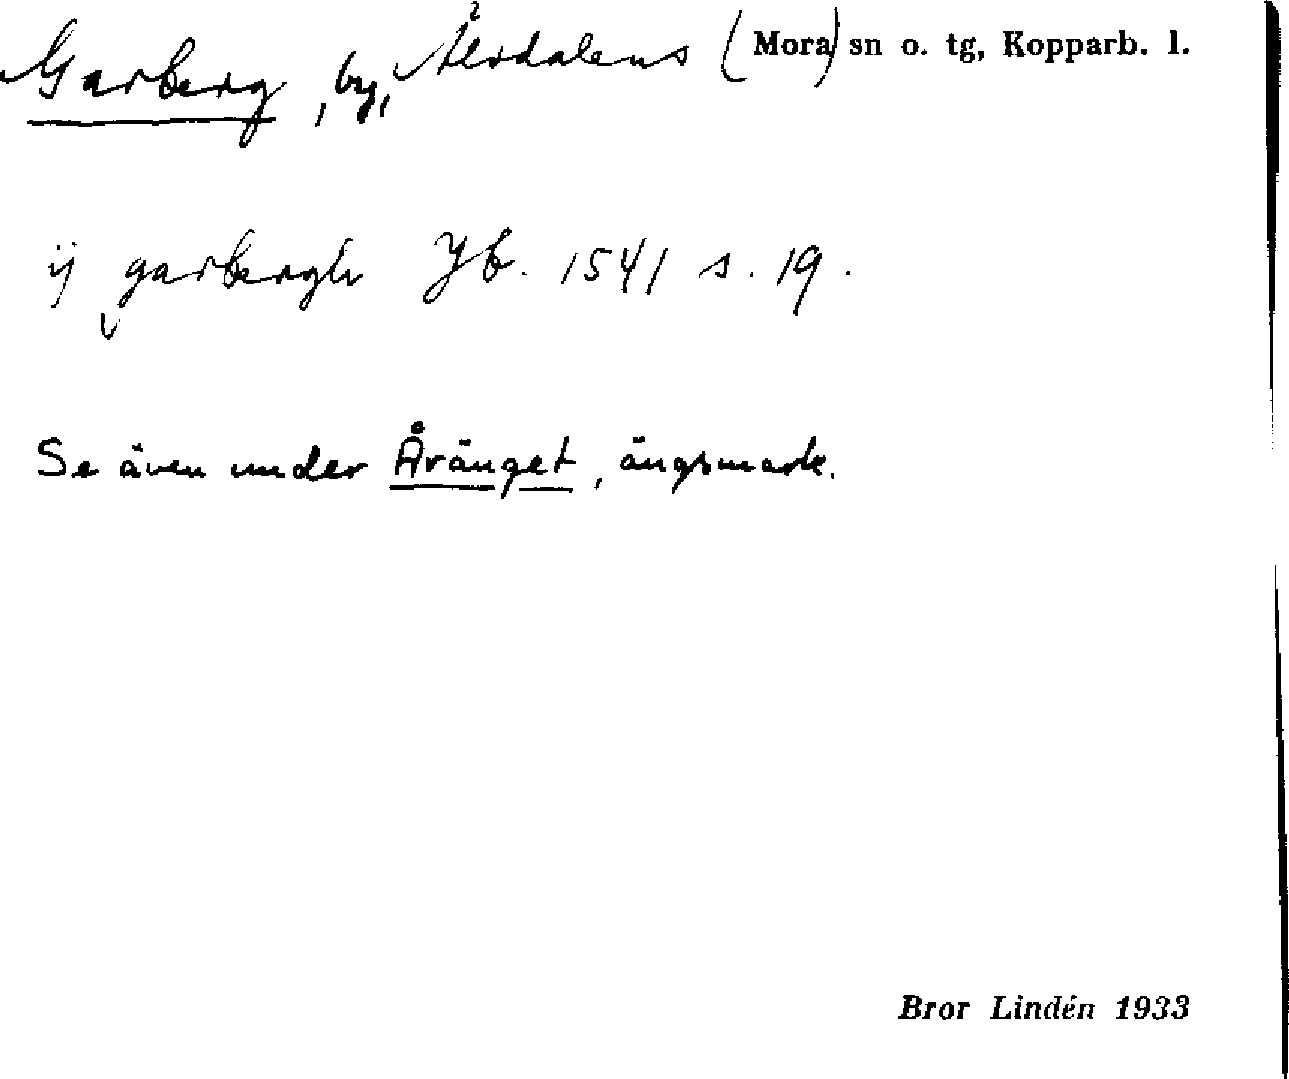 Garberg, by, Älvdalens (Mora) sn o. tg, Kopparb. l.
ij garbergh Jb. 1541 s. 19.
Se även under Åränget, ängsmark.
Bror Lindén 1933